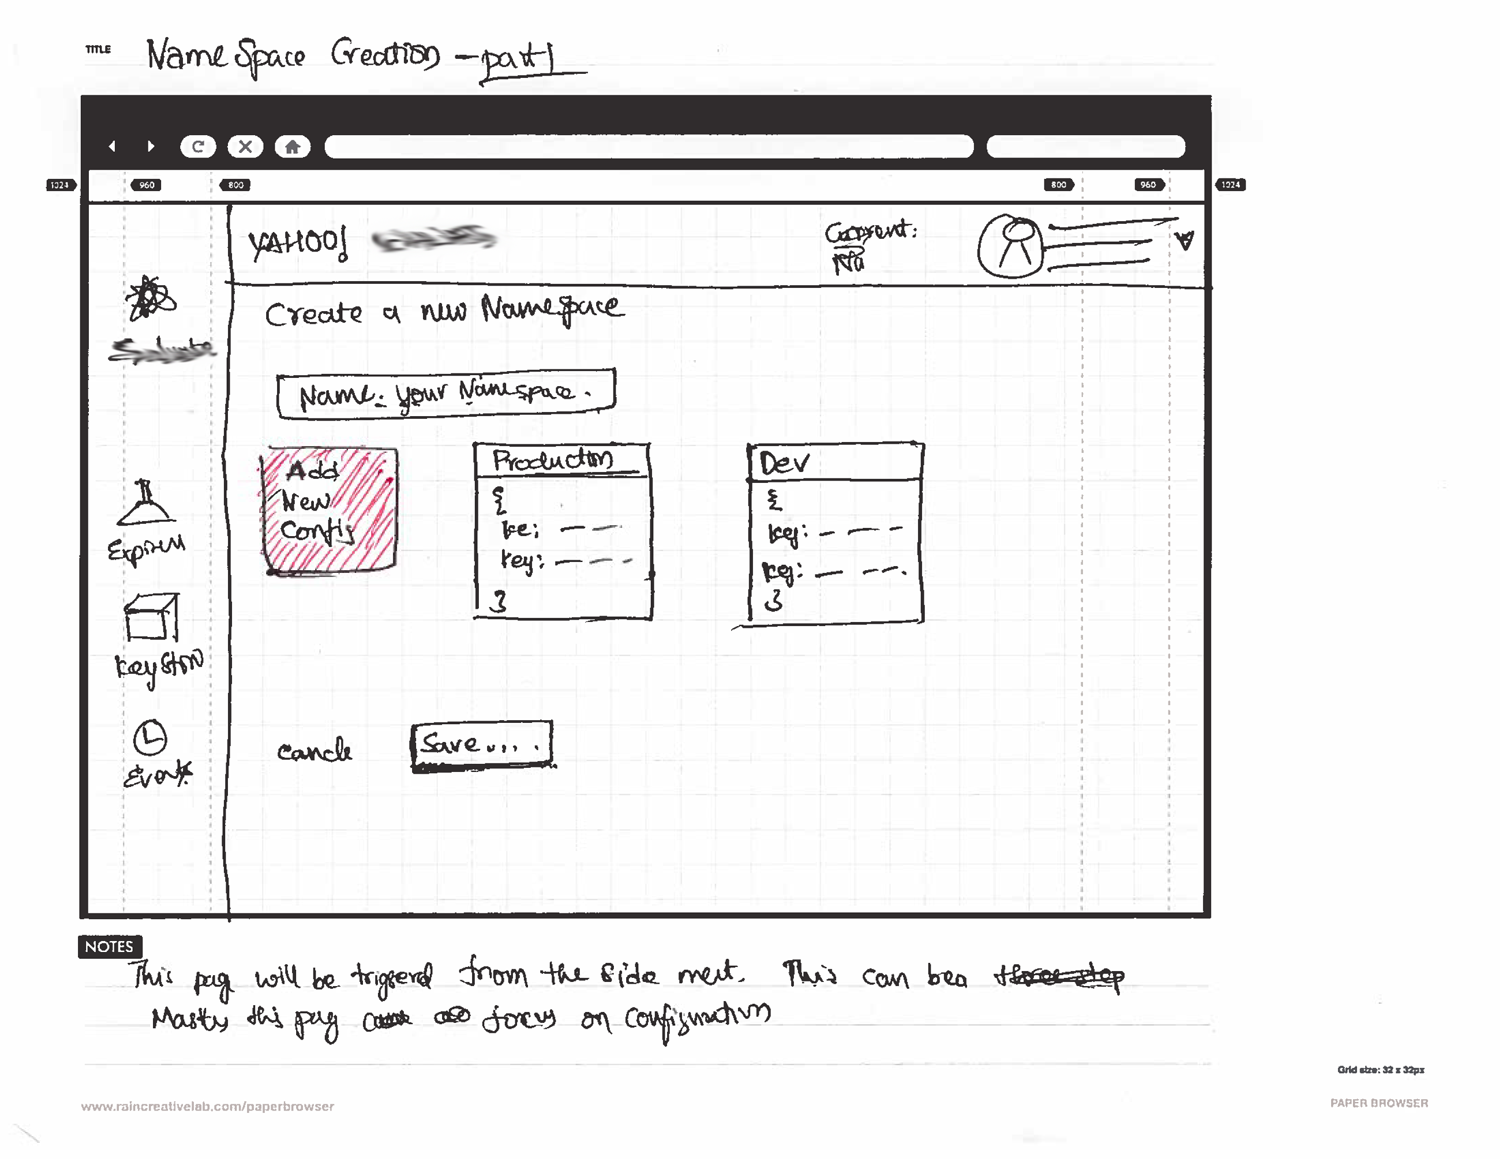 TITLE NameSpace Creation - part 1
1024 960 800 800 960 1024
YAHOO! Current:
Na
Create a new Namespace
Name: your Namespace.
Add
New
Config
Production
{
ke:
key:
}
Dev
{
key:
key:
}
KeySton
Event
cancle
Save....
NOTES
This pag will be triggerd from the side meut. This can bea three step
this pag focus on configuration
Grid size: 32 x 32px
www.raincreativelab.com/paperbrowser
PAPER BROWSER